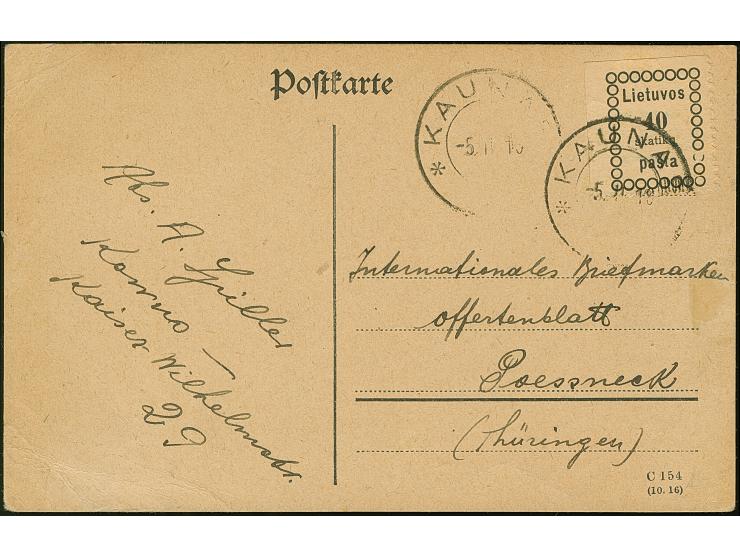 Postkarte
Lietuvos
40
skatikų
pašta
* KAUNAS
-5. II 19
* KAUNA
-5. II 19
Abs. A. Spiller
Kowno
Kaiser Wilhelmstr.
29
Internationales Briefmarken
offertenblatt
Poessneck
(Thüringen)
C 154
(10. 16)